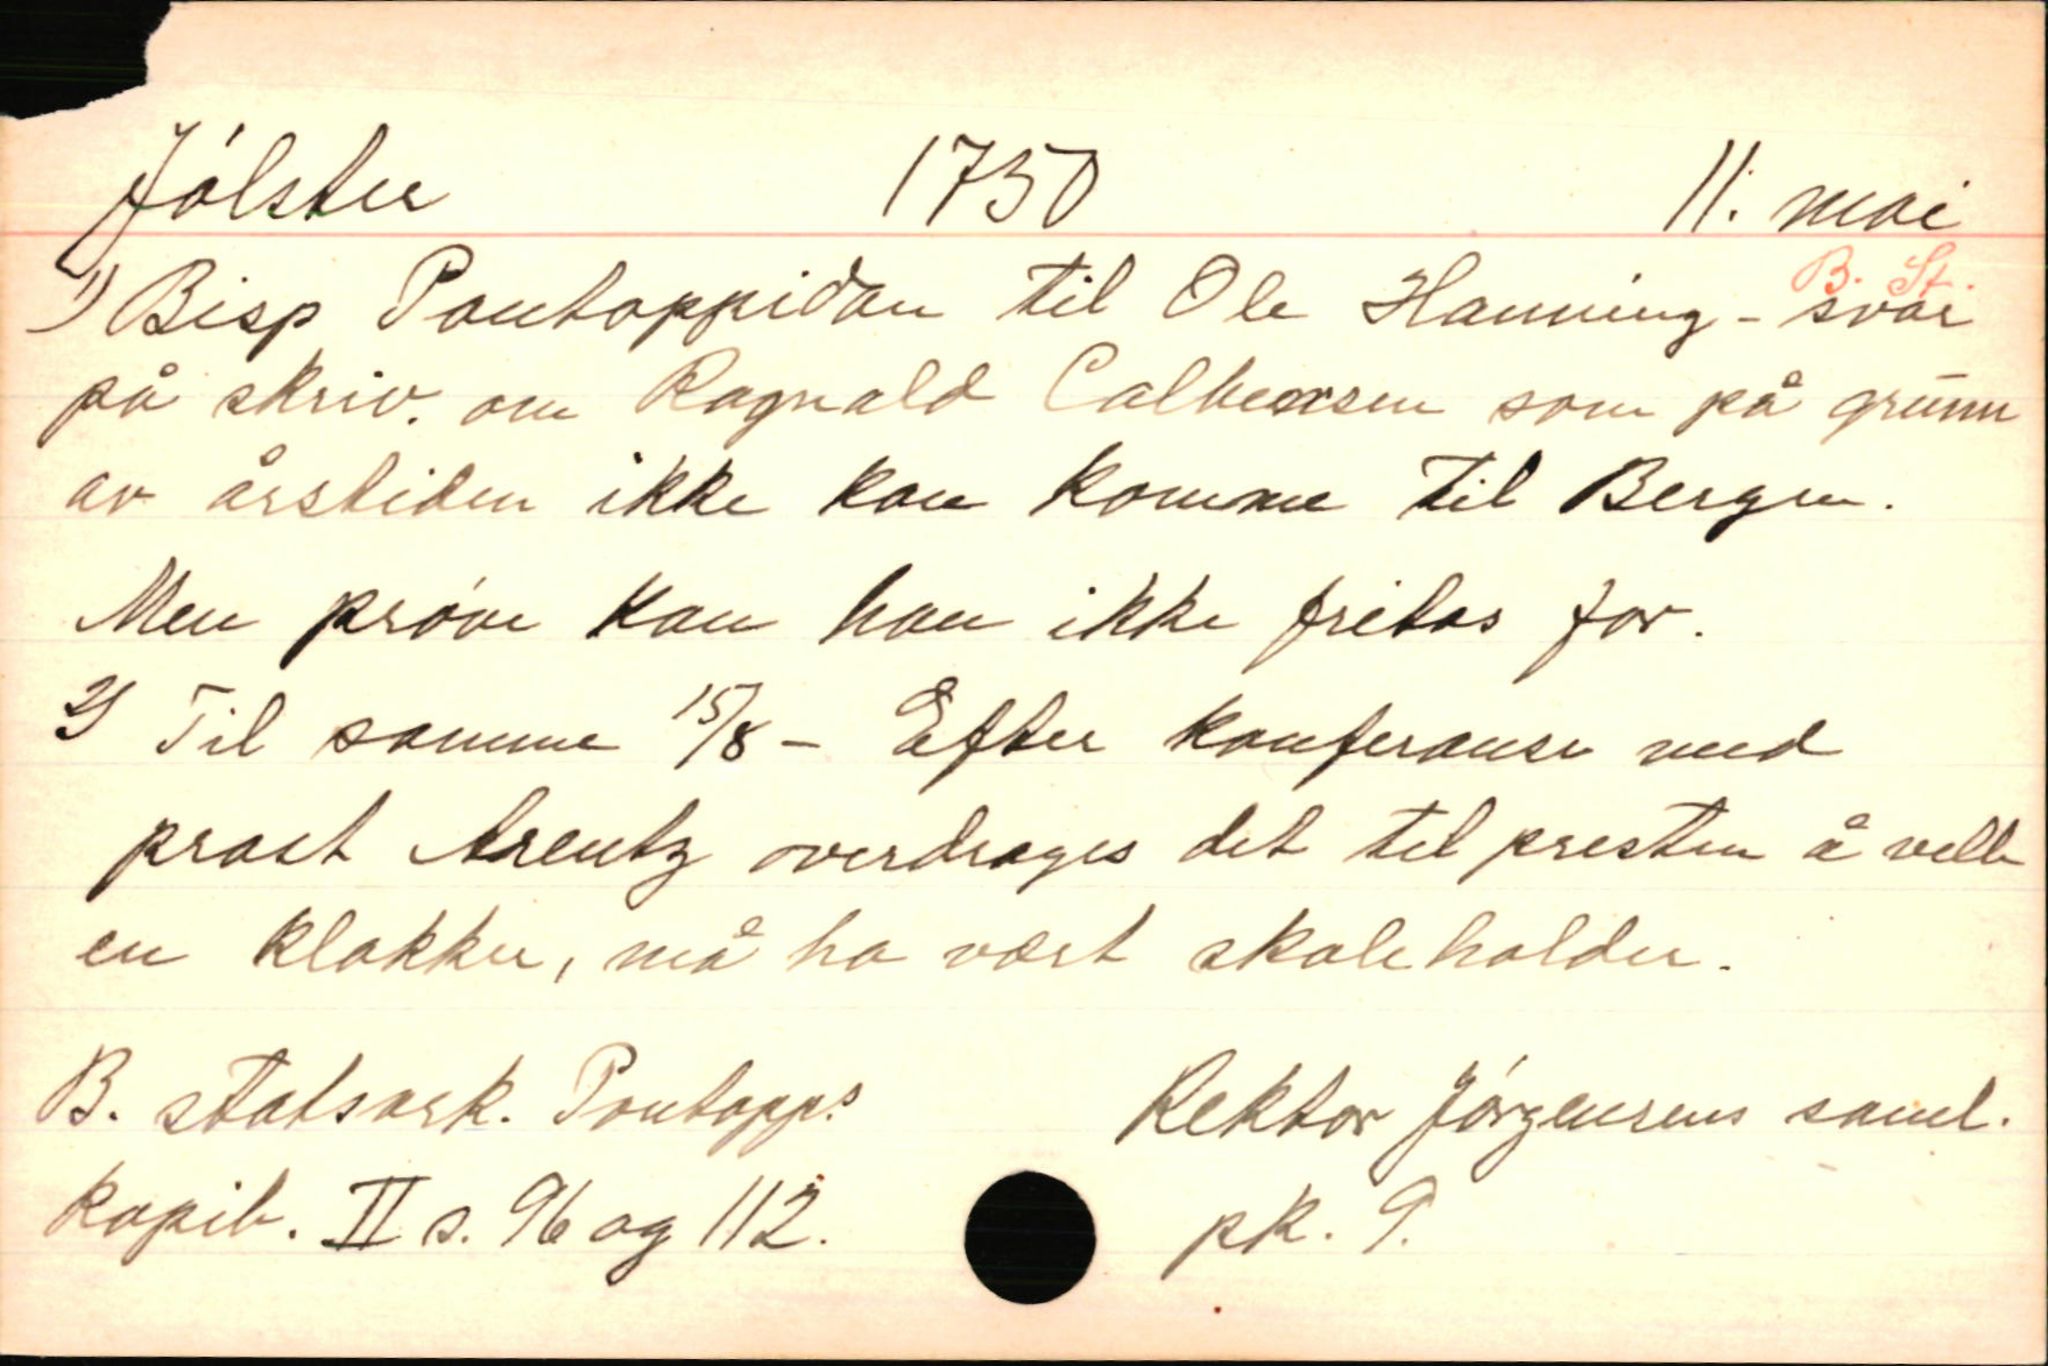 Jølster 1750 11. mai
B. St.
1) Bisp Pontoppidan til Ole Hanning - svar
på skriv. om Ragnald som på grunn
av årstiden ikke kan komme til Bergen.
Men prøve kan han ikke fritas for.
2) Til samme 15/8 - Efter konferanse med
prost Arentz overdrages det til presten å velle
en klokker, må ha vært skoleholder.
B. statsark. Pontopp.s
kopib. II s. 96 og 112.
Rektor Jørgensens saml.
pk. 9.